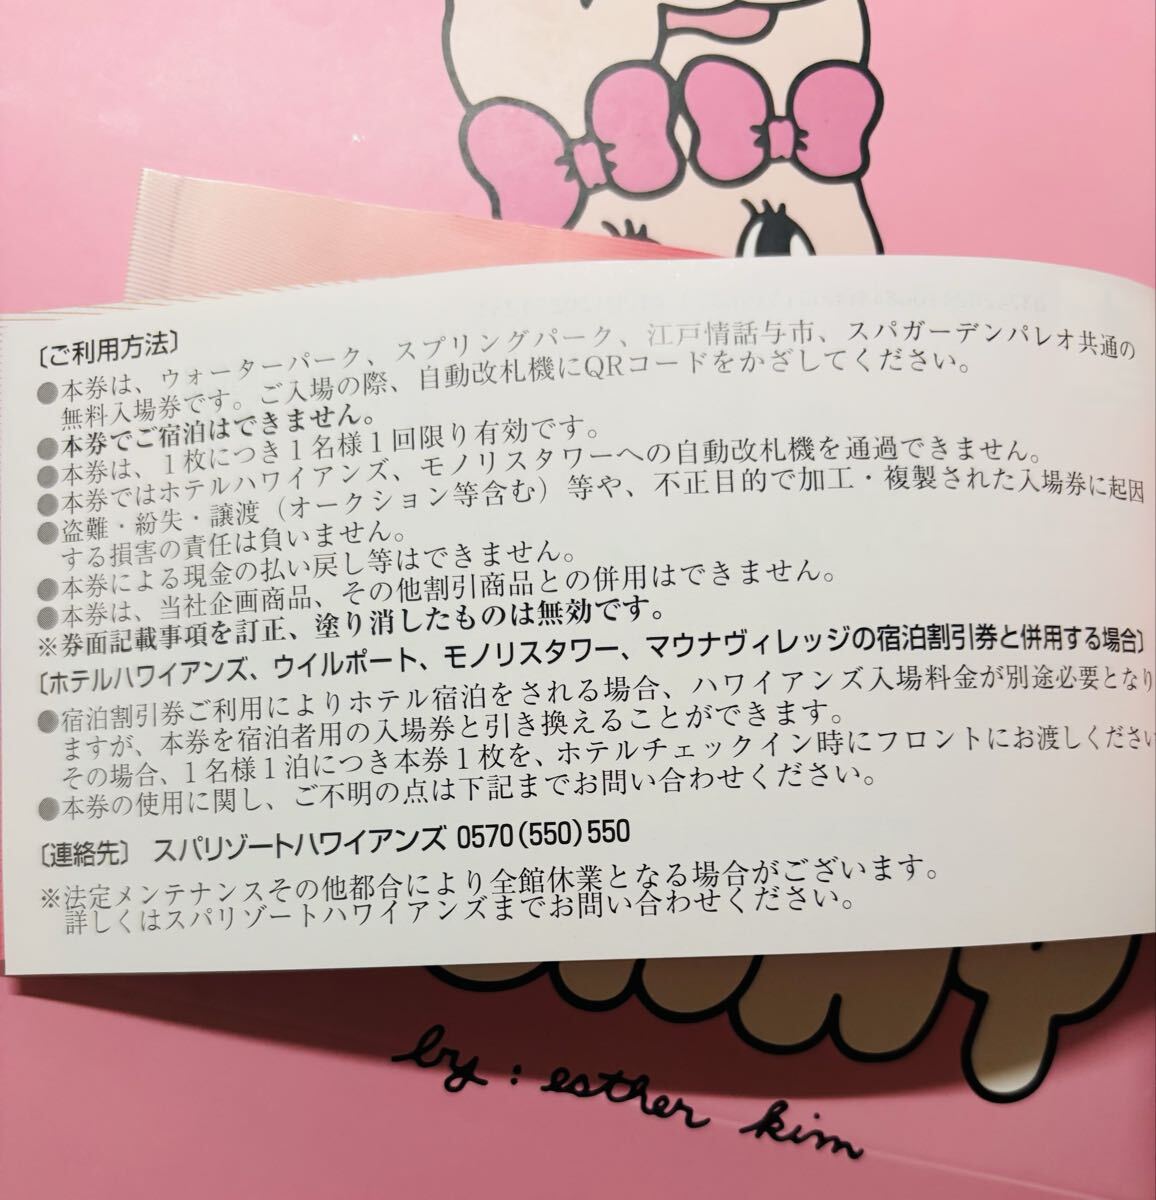 〔ご利用方法〕
●本券は、ウォーターパーク、スプリングパーク、江戸情話与市、スパガーデンパレオ共通の
無料入場券です。ご入場の際、自動改札機にQRコードをかざしてください。
●本券でご宿泊はできません。
●本券は、1枚につき1名様1回限り有効です。
●本券ではホテルハワイアンズ、モノリスタワーへの自動改札機を通過できません。
●盗難・紛失・譲渡（オークション等含む）等や、不正目的で加工・複製された入場券に起因
する損害の責任は負いません。
●本券による現金の払い戻し等はできません。
●本券は、当社企画商品、その他割引商品との併用はできません。
※券面記載事項を訂正、塗り消したものは無効です。
〔ホテルハワイアンズ、ウイルポート、モノリスタワー、マウナヴィレッジの宿泊割引券と併用する場合〕
●宿泊割引券ご利用によりホテル宿泊をされる場合、ハワイアンズ入場料金が別途必要となり
ますが、本券を宿泊者用の入場券と引き換えることができます。
その場合、1名様1泊につき本券1枚を、ホテルチェックイン時にフロントにお渡しください
●本券の使用に関し、ご不明の点は下記までお問い合わせください。
〔連絡先〕 スパリゾートハワイアンズ 0570(550)550
※法定メンテナンスその他都合により全館休業となる場合がございます。
詳しくはスパリゾートハワイアンズまでお問い合わせください。
by : esther kim